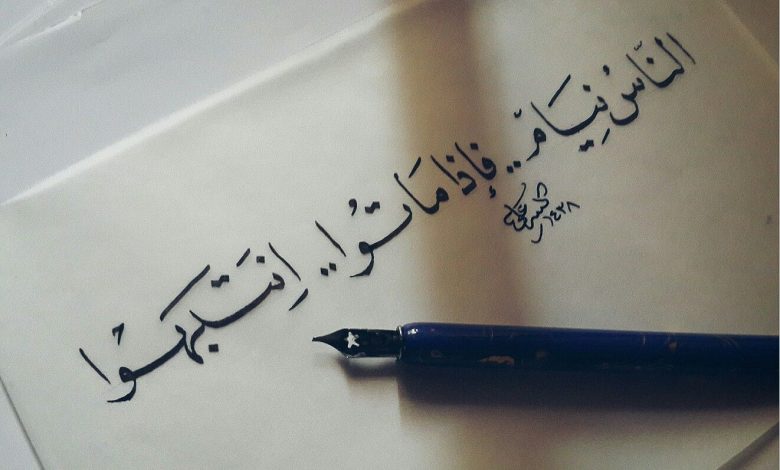 النَّاسُ نِيَامٌ.. فإذا مَاتوُا.. اِنتَبَهوُا
١٤٣٨